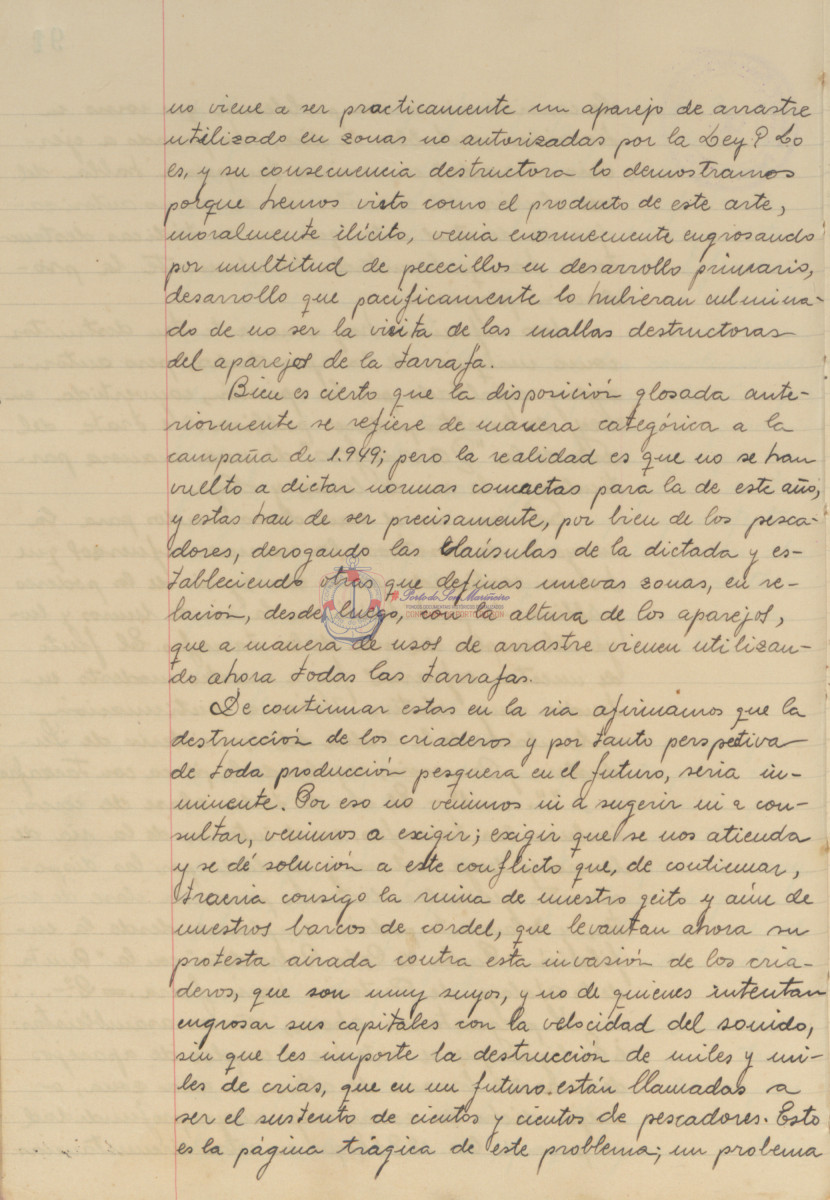 no viene a ser practicamente un aparejo de arrastre
utilizado en zonas no autorizadas por la Ley? Lo
es, y su consecuencia destructora lo demostramos
porque hemos visto como el producto de este arte,
moralmente ilícito, venia enormemente engrosando
por multitud de pececillos en desarrollo primario,
desarrollo que pacificamente lo hubieran culmina-
do de no ser la visita de las mallas destructoras
del aparejos de la tarrafa.
Bien es cierto que la disposición glosada ante-
riormente se refiere de manera categórica a la
campaña de 1.949; pero la realidad es que no se han
vuelto a dictar normas concretas para la de este año,
y estas han de ser precisamente, por bien de los pesca-
dores, derogando las claúsulas de la dictada y es-
tableciendo otras que definas nuevas zonas, en re-
lación, desde luego, con la altura de los aparejos,
que a manera de usos de arrastre vienen utilizan-
do ahora todas las tarrafas.
De continuar estas en la ria afirmamos que la
destrucción de los criaderos y por tanto perspetiva
de toda producción pesquera en el futuro, seria in-
minente. Por eso no venimos ni a sugerir ni a con-
sultar, venimos a exigir; exigir que se nos atienda
y se dé solución a este conflicto que, de continuar,
traeria consigo la ruina de nuestro geito y aún de
nuestros barcos de cordel, que levantan ahora su
protesta airada contra esta invasión de los cria-
deros, que son muy suyos, y no de quienes intentan
engrosar sus capitales con la velocidad del sonido,
sin que les importe la destrucción de miles y mi-
les de crias, que en un futuro están llamadas a
ser el sustento de cientos y cientos de pescadores. Esto
es la página trágica de este problema; un problema